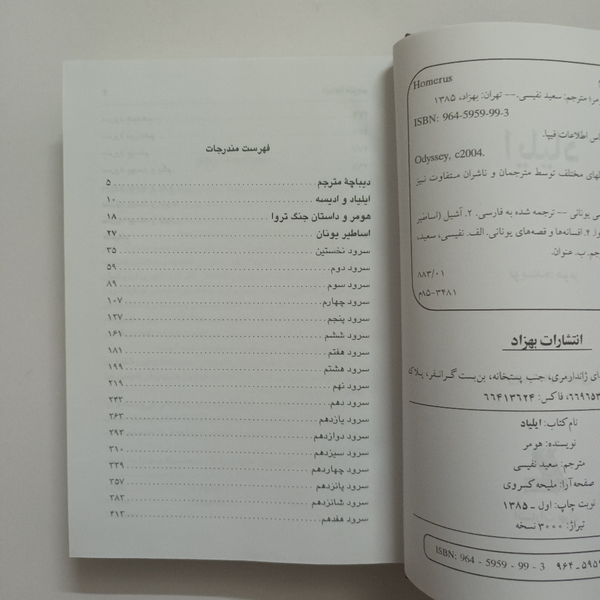 Homerus
مترجم: سعید نفیسی. –– تهران: بهزاد، ۱۳۸۵
ISBN: 964-5959-99-3
اس اطلاعات فیپا.
Odyssey, c2004.
های مختلف توسط مترجمان و ناشران متفاوت نیز
یونانی –– ترجمه شده به فارسی. ۲. آشیل (اساطیر
۴. افسانه‌ها و قصه‌های یونانی. الف. نفیسی، سعید،
جم. ب. عنوان.
۸۸۳/۰۱
۸۵-۳۴۸۱م
انتشارات بهزاد
ژاندارمری، جنب پستخانه، بن‌بست گرانفر، پلاک
فاکس: ۶۶۴۱۳۶۲۴
نام کتاب: ایلیاد
نویسنده: هومر
مترجم: سعید نفیسی
صفحه‌آرا: ملیحه کسروی
نوبت چاپ: اول ــ ۱۳۸۵
تیراژ: ۳۰۰۰ نسخه
ISBN: 964 - 5959 - 99 - 3
فهرست مندرجات
دیباچهٔ مترجم ۵
ایلیاد و ادیسه ۱۰
هومر و داستان جنگ تروا ۱۸
اساطیر یونان ۲۷
سرود نخستین ۳۵
سرود دوم ۵۹
سرود سوم ۸۹
سرود چهارم ۱۰۷
سرود پنجم ۱۲۷
سرود ششم ۱۶۱
سرود هفتم ۱۸۱
سرود هشتم ۱۹۹
سرود نهم ۲۱۹
سرود دهم ۲۴۲
سرود یازدهم ۲۶۳
سرود دوازدهم ۲۹۳
سرود سیزدهم ۳۱۰
سرود چهاردهم ۳۳۹
سرود پانزدهم ۳۵۷
سرود شانزدهم ۳۸۳
سرود هفدهم ۴۱۳